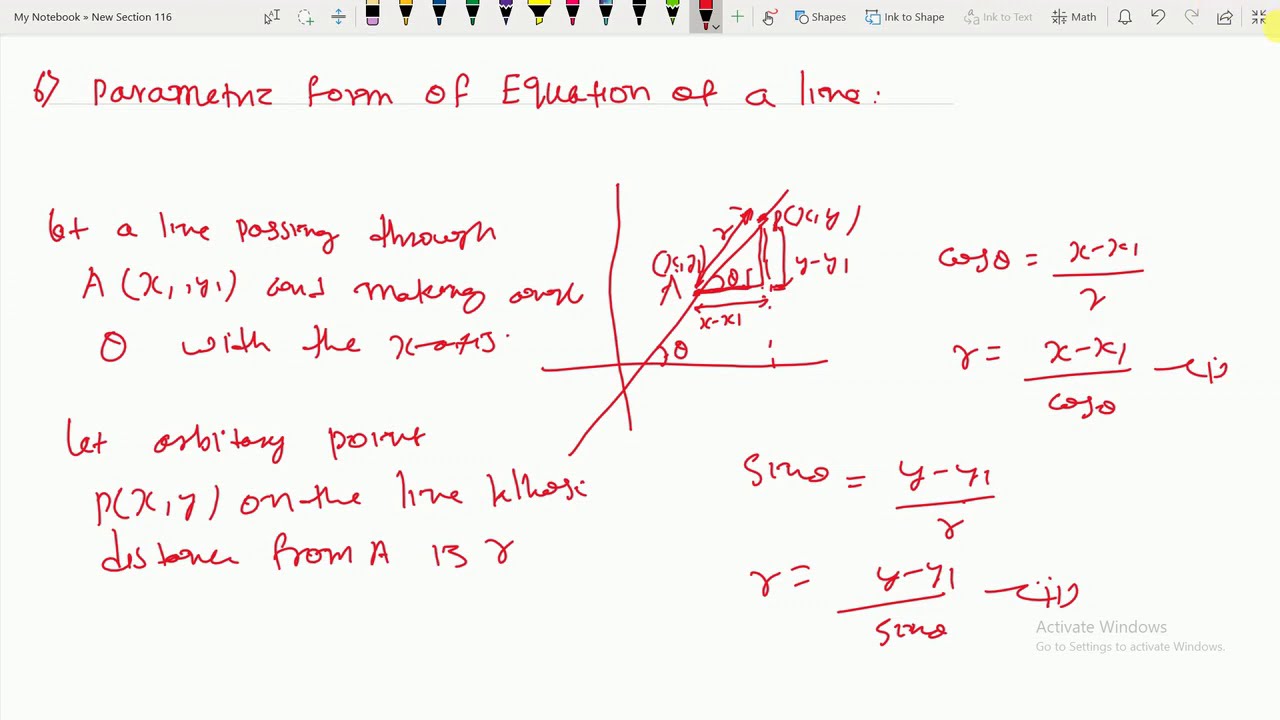 My Notebook » New Section 116
Shapes
Ink to Shape
Ink to Text
Math
6) Parametriz form of Equation of a line:
let a line passing through
A (x₁, y₁) and making angle
θ with the x-axis.
let arbitary point
P(x, y) on the line whose
distance from A is r
P(x, y)
r
(x₁y₁)
A
θ
y-y₁
x-x₁
θ
cosθ = x-x₁ / r
r = x-x₁ / cosθ —(i)
sinθ = y-y₁ / r
r = y-y₁ / sinθ —(ii)
Activate Windows
Go to Settings to activate Windows.